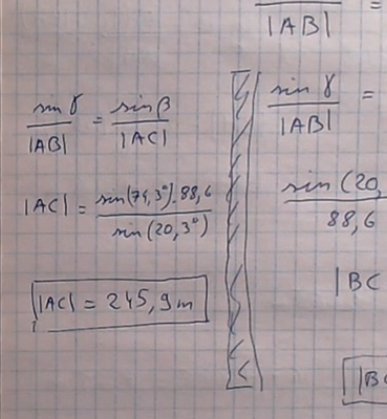 |AB| =
sin γ / |AB| = sin β / |AC|
|AC| = sin(74,3°)·88,6 / sin(20,3°)
|AC| = 245,9m
sin γ / |AB| =
sin (20, / 88,6
|BC
|BC